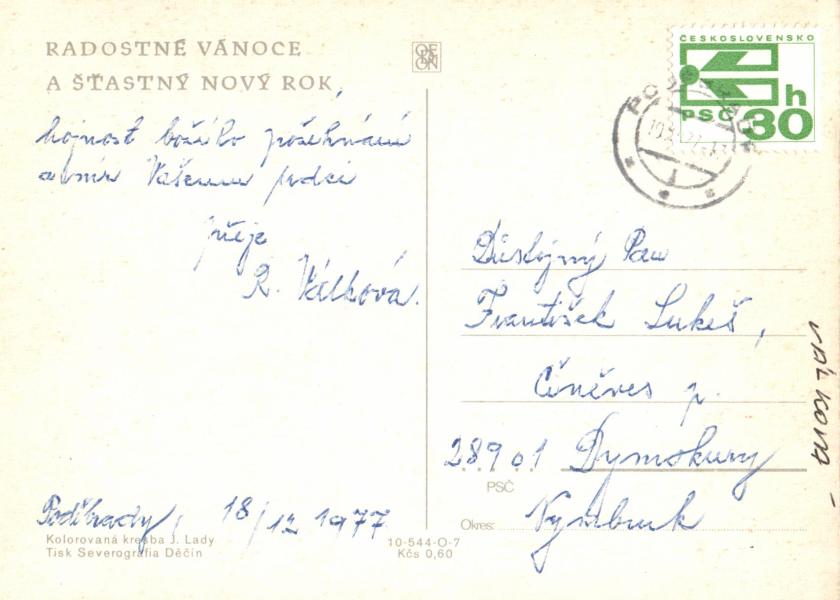 RADOSTNÉ VÁNOCE
A ŠŤASTNÝ NOVÝ ROK,
hojnost božího požehnání
a mír Vašemu srdci
přeje
R. Válková.
Poděbrady, 18/12 1977
Kolorovaná kresba J. Lady
Tisk Severografia Děčín
10-544-O-7
Kčs 0,60
ORBIS
ČESKOSLOVENSKO
PSČ
h
30
Důstojný Pan
František Lukeš,
Činěves p.
28901 Dymokury
PSČ
Okres: Nymburk